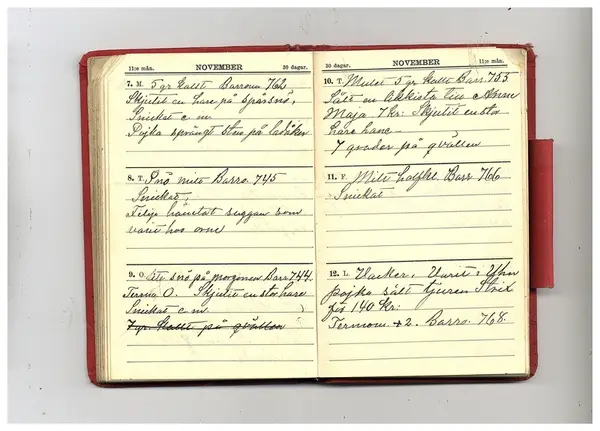 11:e mån. NOVEMBER 30 dagar.
7. M. 5 gr Kallt Barrom 762
Skjutit en hare på spårsnö,
Snickat c m
Pojka sprängt sten på ladåker
8. T. Snö mile Barro. 745
Snickat,
Filip hämtat suggan som
varit hos orne
9. O. lite snö på morgonen Barr 744.
Termo 0. Skjutit en stor hare
Snickat c m
7 gr. Kallt på qvällen
30 dagar. NOVEMBER 11:e mån.
10. T. Mulet 5 gr Kallt Barr. 755
Sålt en till Anna
Maja 7 kr: Skjutit en stor
hare hane
7 grader på qvällen
11. F. Milt halfkl. Barr 766
Snickat
12. L. Vacker. Varit i
pojka sålt tjuren Strix
för 140 Kr:
Termom +2. Barro. 768.